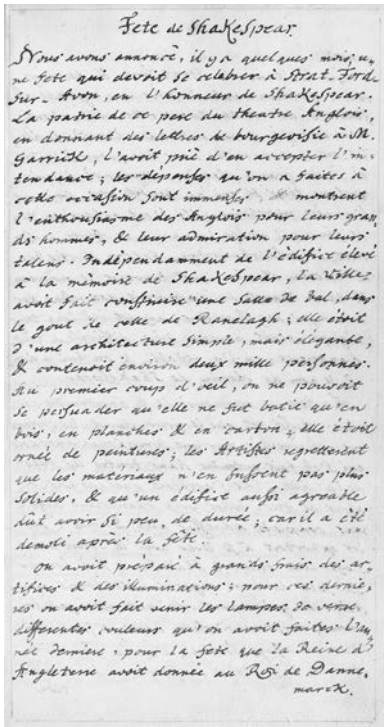 Fete de Shakespear
Nous avons annoncé, il y a quelques mois, u-
ne fete qui devoit se celebrer à Strat-Ford
Sur-Avon, en l'honneur de Shakespear.
La patrie de ce pere du theatre Anglois,
en donnant des lettres de bourgeoisie à M.
Garrick, l'avoit prié d'en accepter l'in-
tendance; les depenses qu'on a faites à
cette occasion sont immenses, & montrent
l'enthousiasme des Anglois pour leurs gran-
ds hommes, & leur admiration pour leurs
talens. Indépendamment de l'édifice élevé
à la mémoire de Shakespear, la Ville
avoit fait construire une Salle de bal, dans
le gout de celle de Ranelagh; elle étoit
d'une architecture simple, mais élégante,
& contenoit environ deux mille personnes.
Au premier coup d'oeil, on ne pouvoit
se persuader qu'elle ne fut batie qu'en
bois, en planches & en carton; elle étoit
ornée de peintures; les Artistes regretterent
que les matériaux n'en fussent pas plus
solides, & qu'un édifice aussi agreable
dût avoir si peu de durée; car il a été
demoli après la fête.
On avoit préparé à grands frais des ar-
tifices & des illuminations; pour ces dernie-
res on avoit fait venir les lampes de verre
differentes couleurs qu'on avoit faites l'an-
née derniere, pour la fete que la Reine d'
Angleterre avoit donnée au Roi de Danne-
marck.